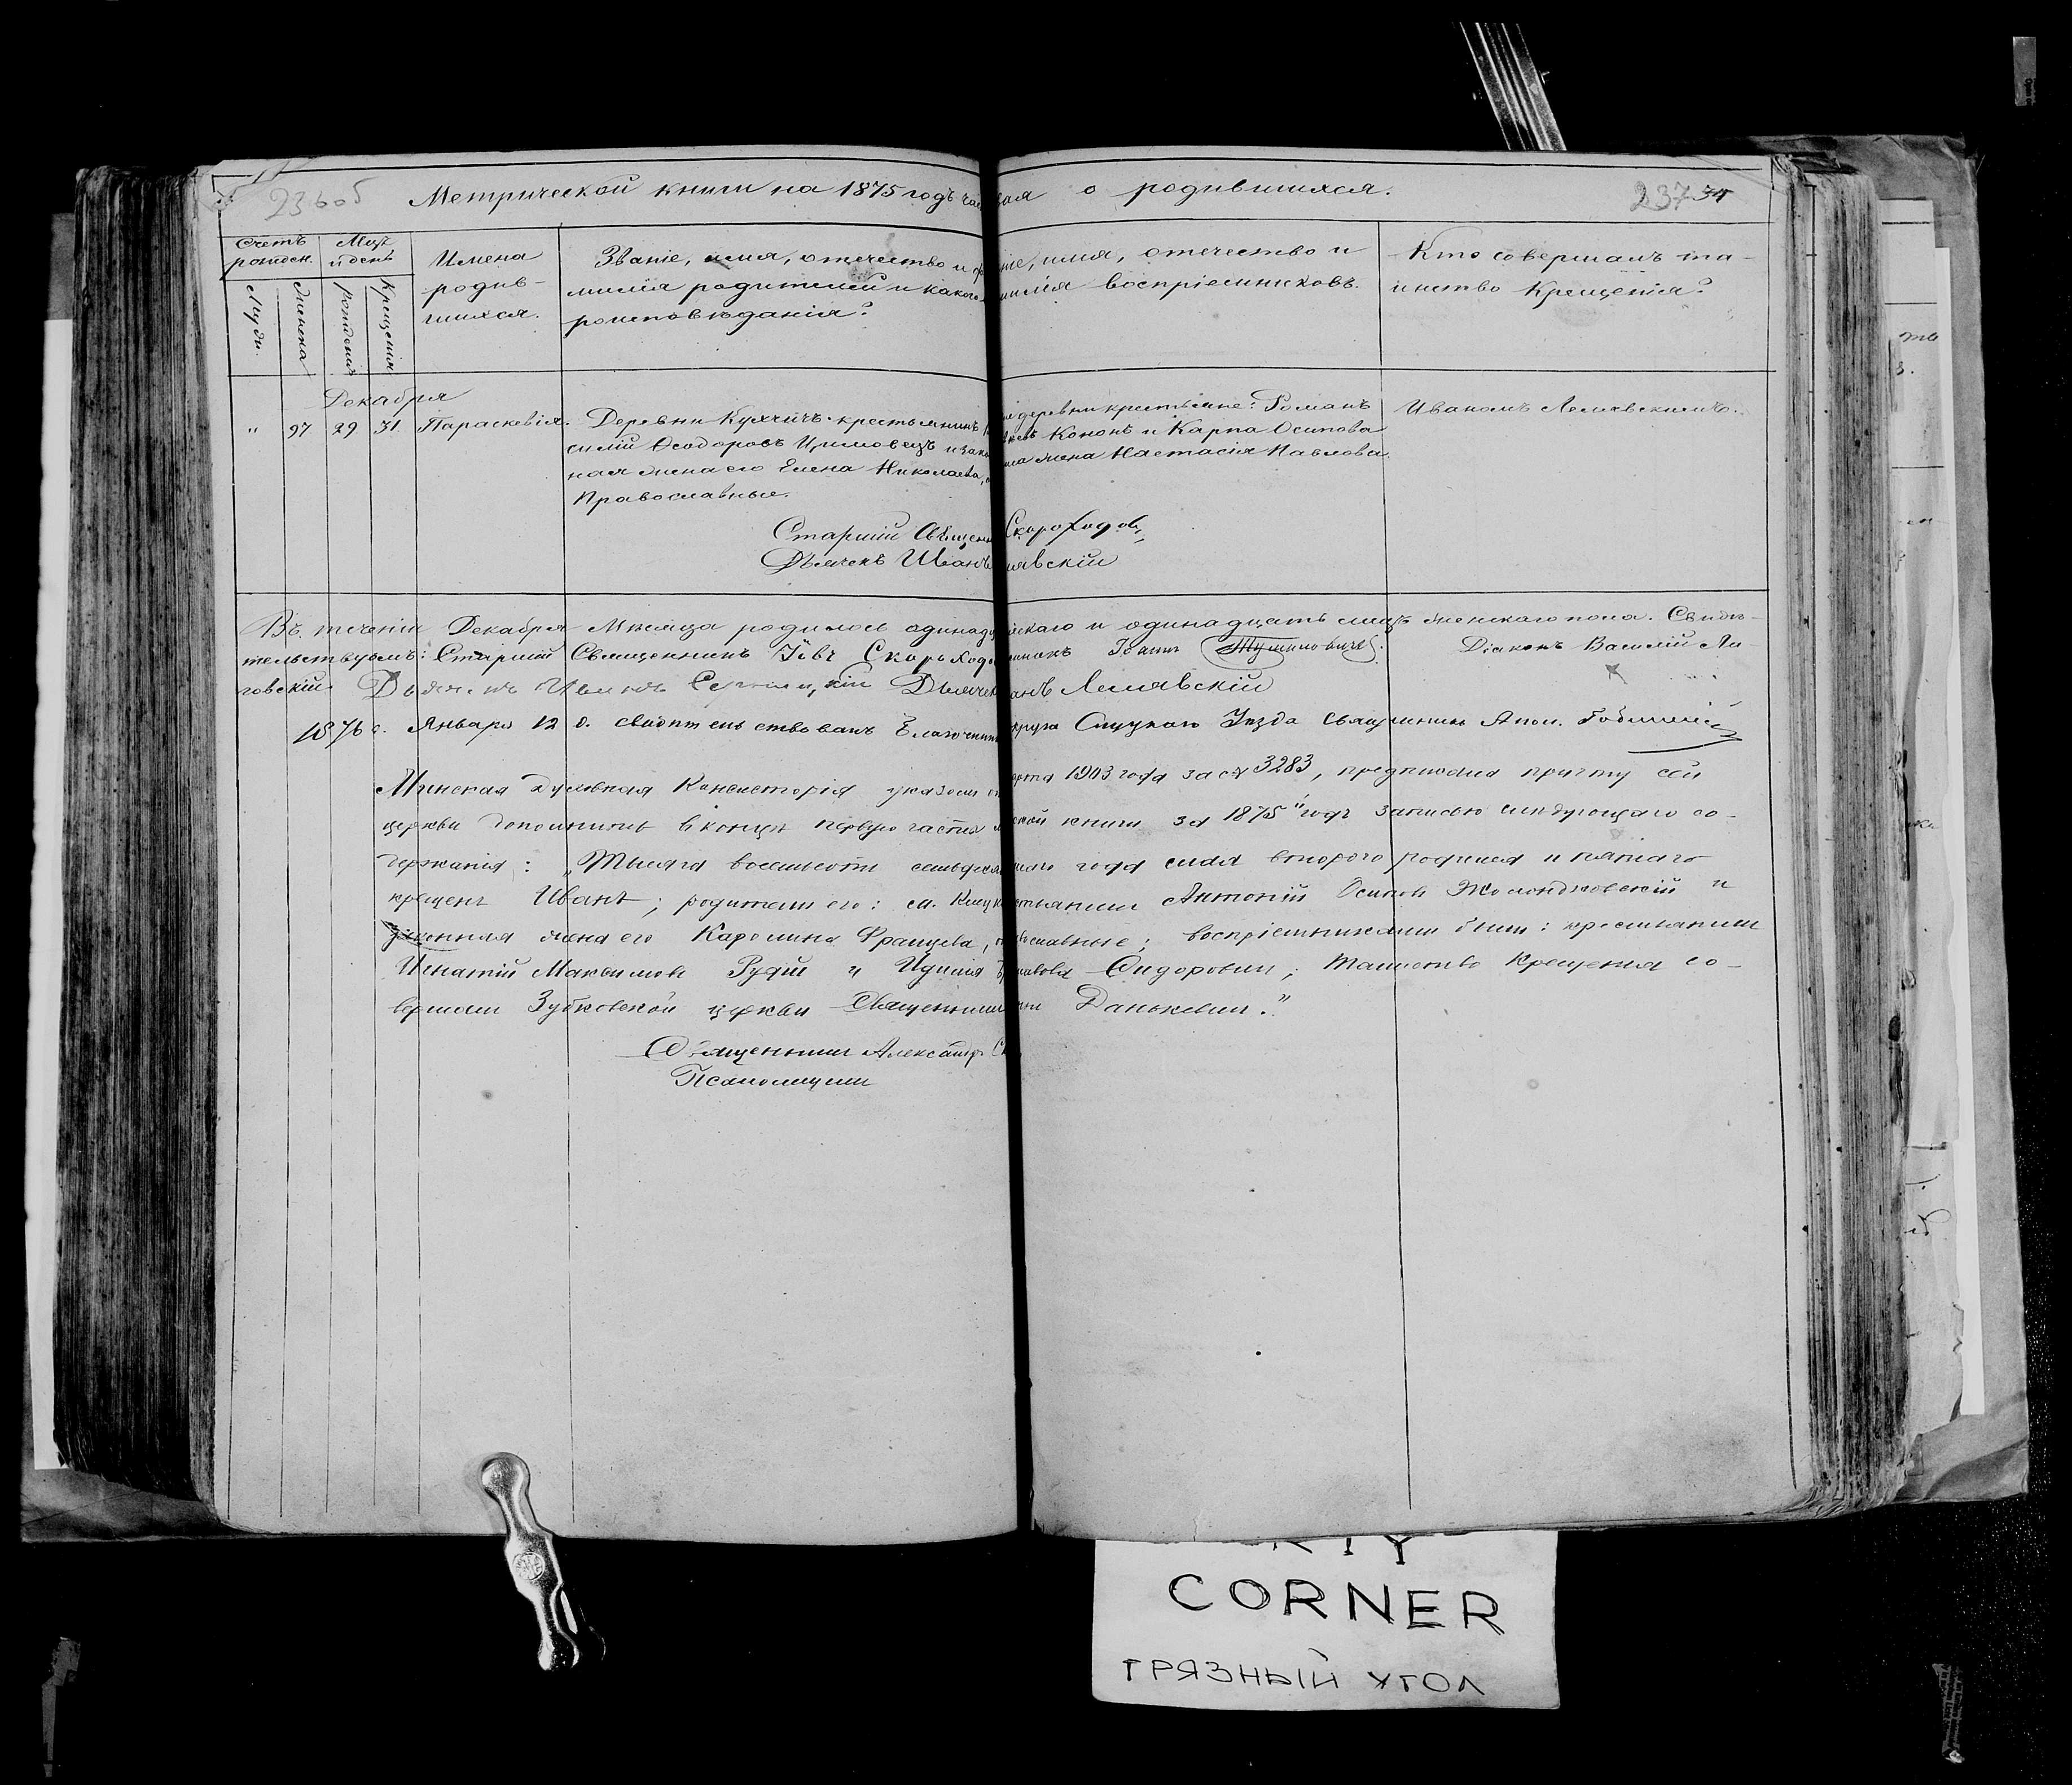 236об
Метрической книги на 1875 годъ час вая о родившихся.
237 34
Счетъ рожден.
Мѣс. и день
Мужн.
Женска
Рожденія
Крещенія
Имена
родив-
шихся.
Званіе, имя, отечество и ф
милія родителей и какого
роисповѣданія?
ніе, имя, отечество и
милія воспріемниковъ.
Кто совершалъ та-
инство Крещенія?
Декабря
" 97 29 31 Параскевія.
Деревни Кухчичъ крестьянинъ
силій Ѳеодоровъ и зако
ная жена его Елена Николаева,
Православные.
деревни крестьяне: Романъ
Кононъ и Карпа Осипова
жена Настасія Павлова
Иваномъ Лешявскимъ.
Старшій Священ Скороходов
Дьячекъ Иванъ явскій
Въ теченіи Декабря Мѣсяца родилось одинад скаго и одинадцать женскаго пола. Свидѣ-
тельствуемъ: Старшій Священникъ Скороход Іоаннъ Тушиновичъ. Діаконъ Василій Ли-
говскій. Дьячекъ Дьячек анъ Лешявскій
1876 г. Января 12 д. свидѣтельствовалъ Благочинн округа Слуцкаго Уѣзда Священникъ
Минская Духовная Консисторія указомъ о рта 1903 года за № 3283, предписала причту сей
церкви дополнить въ концѣ первую часть ской книги за 1875 годъ записью слѣдующаго со-
держанія: „Тысяча восемьсотъ семьдеся года мая второго родился и пятаго
крещенъ Иванъ; родители его: м. Клецк стьянинъ Антоній Осиповъ Жолондковскій и
законная жена его Каролина Францева, вославные; воспріемниками были: крестьянинъ
Игнатій Максимовъ Рудый и Сидорович; Таинство Крещенія со-
вершалъ Зубковской церкви Священник Данкевич."
Священникъ Александр С
Псаломщикъ
CORNER
ГРЯЗНЫЙ УГОЛ